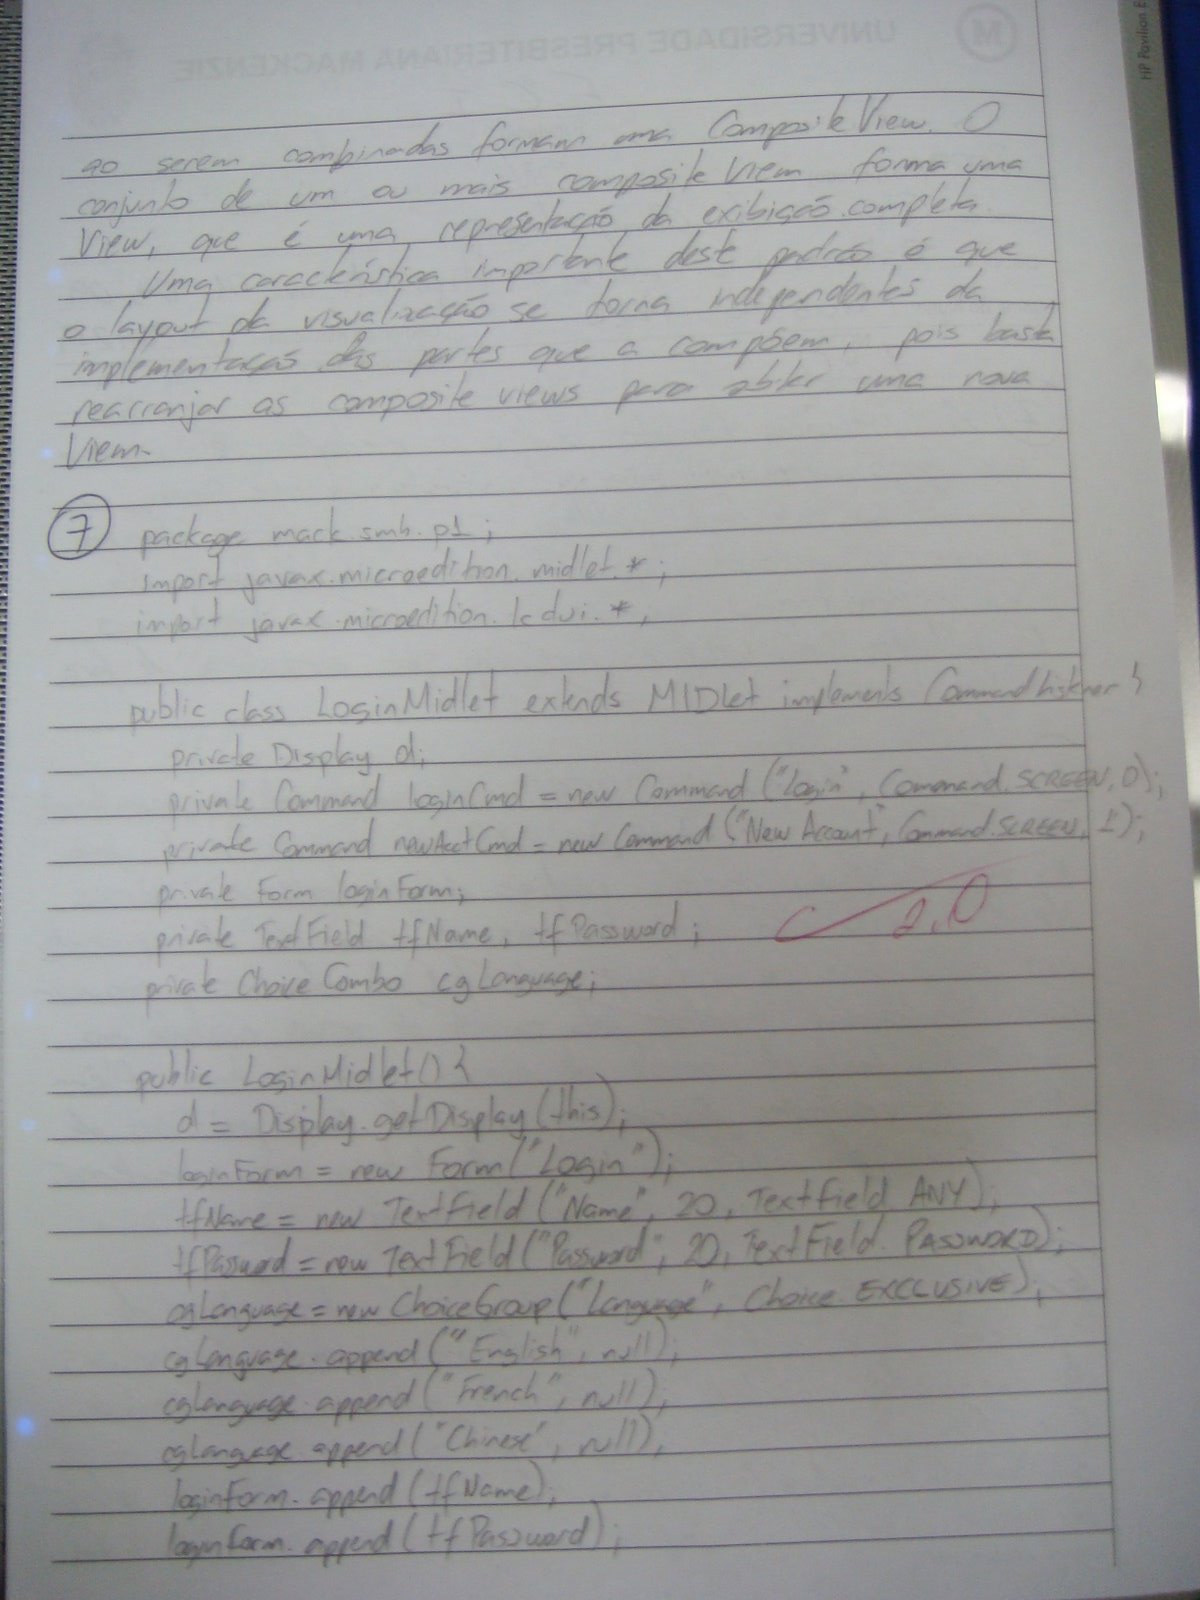 UNIVERSIDADE PRESBITERIANA MACKENZIE
M
HP Pavilion
ao serem combinadas formam uma Composite View. O
conjunto de um ou mais composite View forma uma
View, que é uma representação da exibição completa.
Uma característica importante deste padrão é que
o layout da visualização se torna independentes da
implementação das partes que a compõem, pois basta
rearranjar as composite views para obter uma nova
View.
7
package mack.smb.p1;
import javax.microedition.midlet.*;
import javax.microedition.lcdui.*,
public class LoginMidlet extends MIDlet implements CommandListener {
private Display d;
private Command loginCmd = new Command ("Login", Command.SCREEN, 0);
private Command newAcctCmd = new Command ("New Account", Command.SCREEN, 1);
private Form loginForm;
private TextField tfName, tfPassword;
2,0
private Choice Combo cgLanguage;
public LoginMidlet() {
d = Display.getDisplay(this);
loginForm = new Form("Login");
tfName = new TextField ("Name", 20, TextField ANY);
tfPassword = new TextField ("Password", 20, TextField.PASSWORD);
cgLanguage = new ChoiceGroup ("Language", Choice EXCLUSIVE);
cgLanguage.append ("English", null);
cgLanguage.append ("French", null),
cgLanguage.append ("Chinese", null),
loginForm.append (tfName);
loginForm.append (tfPassword);